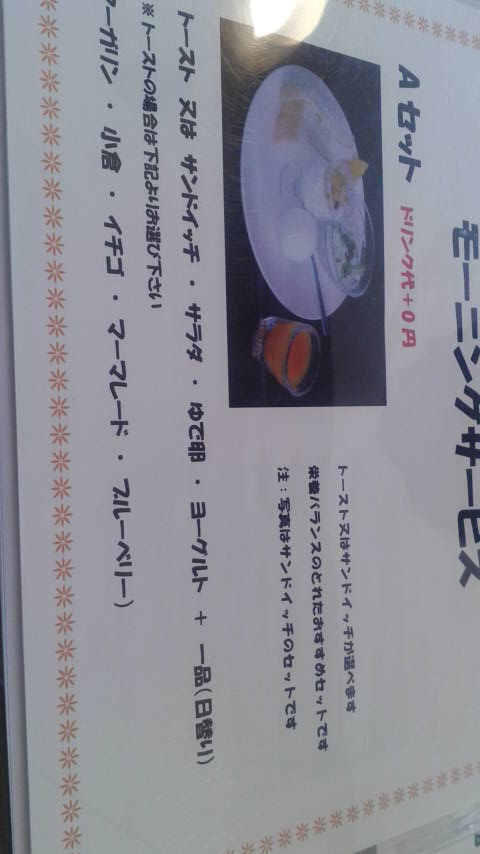 モーニングサービス
Aセット ドリンク代+0円
トースト又はサンドイッチが選べます
栄養バランスのとれたおすすめセットです
注：写真はサンドイッチのセットです
トースト 又は サンドイッチ ・ サラダ ・ ゆで卵 ・ ヨーグルト + 一品(日替り)
※トーストの場合は下記よりお選び下さい
マーガリン ・ 小倉 ・ イチゴ ・ マーマレード ・ ブルーベリー)